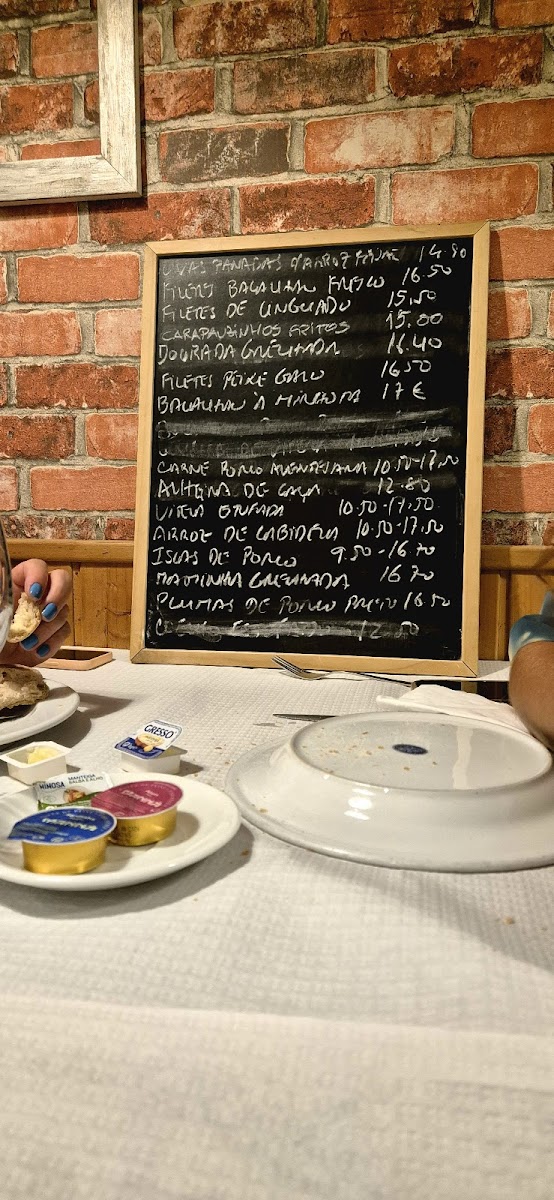 OVAS PANADAS C/ARROZ 14.90
FILETES BACALHAU FRESCO 16.50
FILETES DE LINGUADO 15,50
CARAPAUZINHOS FRITOS 15.00
DOURADA GRELHADA 16.40
FILETES PEIXE GALO 16,50
BACALHAU À MINHOTA 17€
CARNE PORCO ALENTEJANA 10.50-17,50
ALHEIRA DE CAÇA 12.80
VITELA ESTUFADA 10.50-17,50
ARROZ DE CABIDELA 10.50-17,50
ISCAS DE PORCO 9.50-16.70
MAMINHA GRELHADA 16.70
PLUMAS DE PORCO PRETO 16.50
12.50
GRESSO
MIMOSA
MANTEIGA
SALSA E ALHO